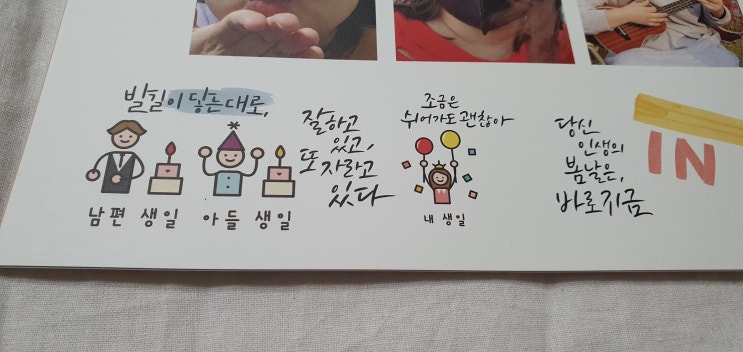 발길이 닿는대로,
남편 생일
아들 생일
잘하고
있고,
또 자라고
있다
조금은
쉬어가도 괜찮아
내 생일
당신
인생의
봄날은,
바로지금
IN